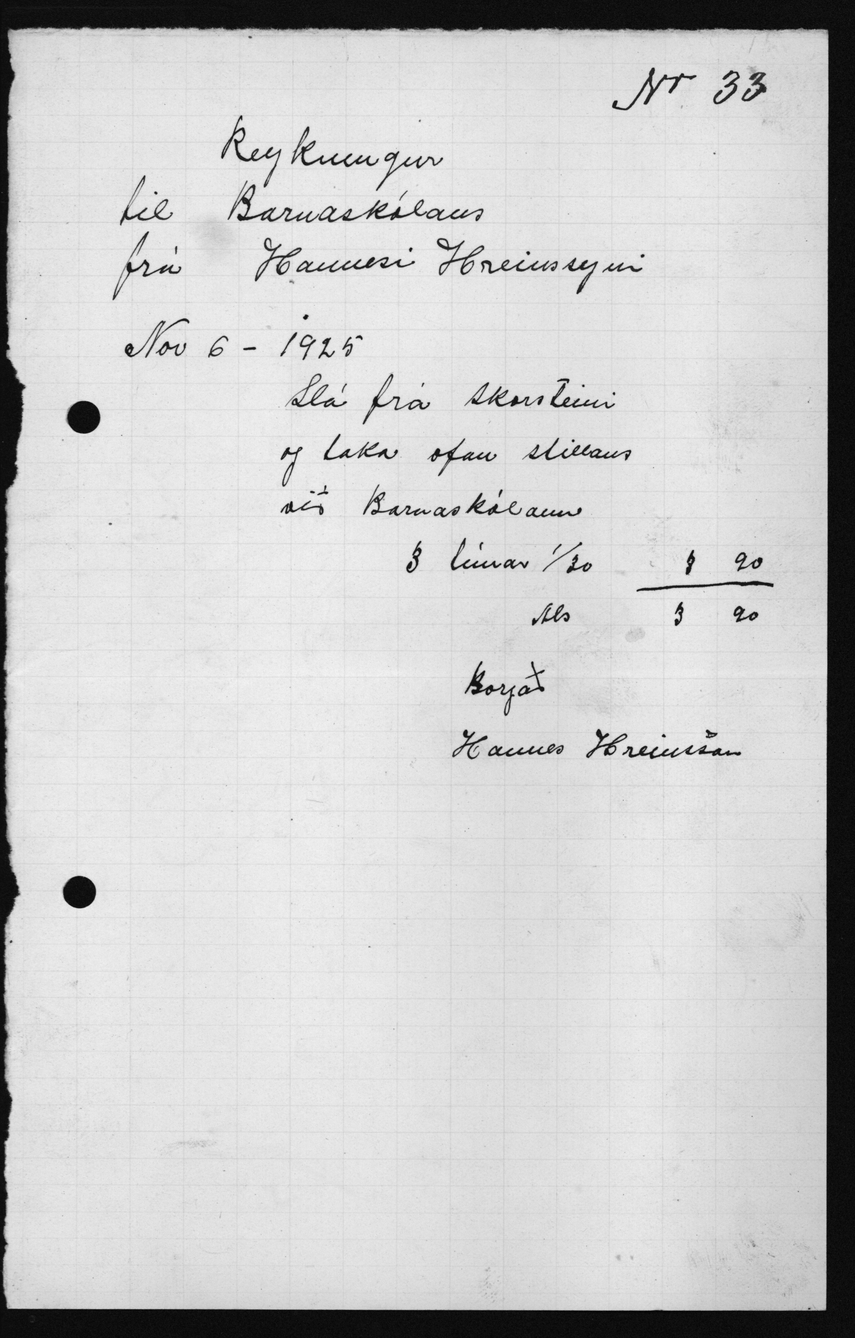 Nr 33
Reykningur
til Barnaskólans
frá Hannesi Hreinssyni
Nov 6 - 1925
Slá frá skorsteini
og taka ofan stillans
við Barnaskólann
3 tímar 1/30 3 90
Als 3 90
Borgað
Hannes Hreinsson